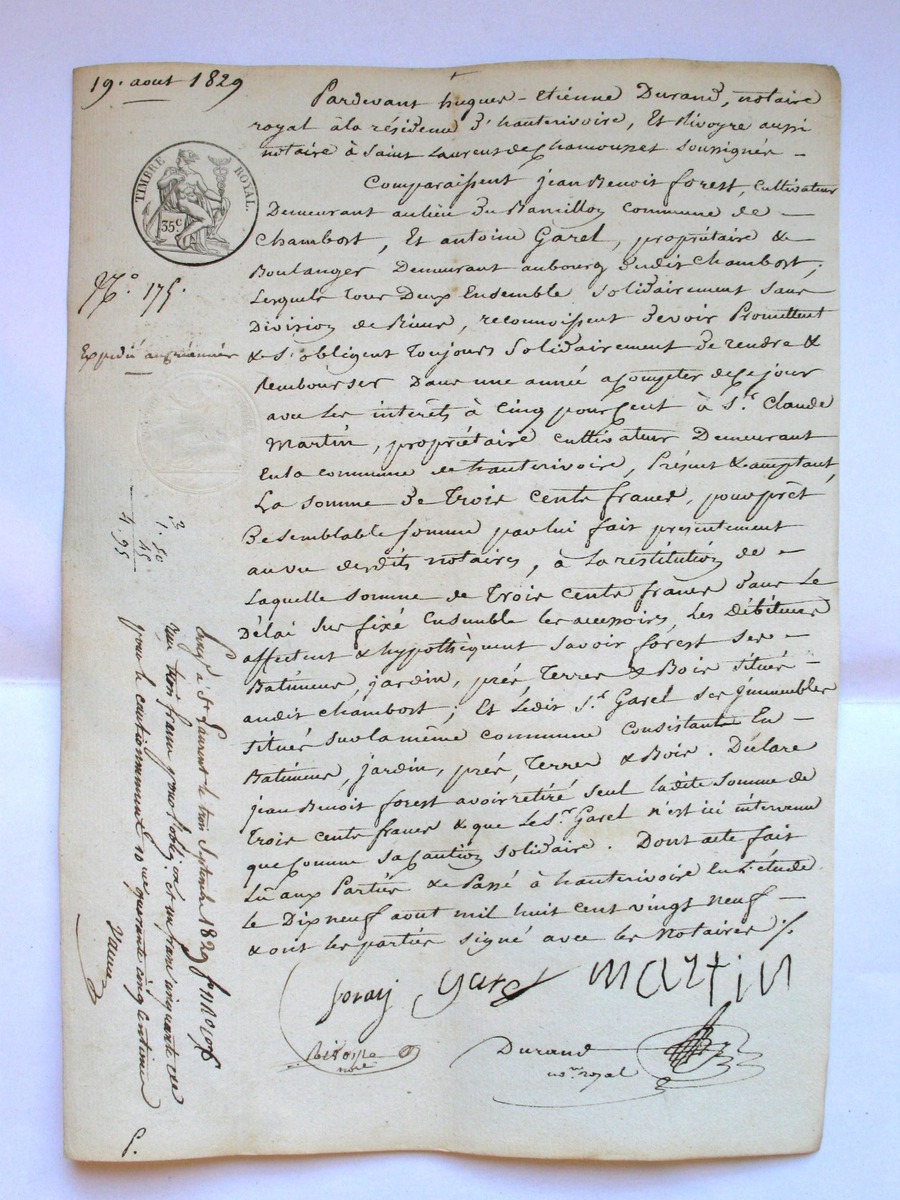 19. aout 1829
TIMBRE ROYAL.
35c
N.° 175.
Expedié au créancier
Pardevant hugues-etienne Durand, notaire
royal à la résidence d'hauterivoire, Et Rivoyre aussi
notaire à Saint Laurent de Chamousset soussignés —
Comparaissent jean Benoit forest, Cultivateur
Demeurant au lieu du commune de —
Chambost, Et antoine Garel, propriétaire &
Boulanger Demeurant au bourg dudit Chambost;
Lesquels tous Deux Ensemble solidairement sans
Division de Biens, reconnoissent devoir Promettent
& s'obligent toujours Solidairement de rendre &
Rembourser Dans une année a compter de ce jour
avec les interêts à Cinq pour Cent à S.r Claude
Martin, propriétaire cultivateur Demeurant
En la commune de hauterivoire, Présent & acceptant,
La somme de Trois Cents francs, pour prêt
De semblable somme par lui fait presentement
au vu desdits notaires, à la restitution de —
Laquelle somme de Trois Cents francs dans le
Délai sus fixé Ensemble les accessoires, les Débiteurs
affectent & hypothèquent savoir forest ses —
Batiments, jardin, prés, Terres & Bois situés —
audit chambost; Et Ledit S.r Garel ses immeubles
situés sur la même commune Consistants En —
Batiments, jardin, prés, Terres & Bois. Déclare
jean Benoit forest avoir retiré seul ladite somme de
Trois Cents francs & que le S.r Garel n'est ici intervenu
que comme sa Caution solidaire. Dont acte fait
Lu aux Parties & Passé à hauterivoire En l'étude
le Dix neuf aout mil huit cent vingt neuf —
& ont les parties signé avec les Notaires ./.
foray Garel Martin
Rivoire
nore
Durand
no.re royal
3. 50
1. 45
4. 95
Enreg.é à St Laurent le trois Septembre 1829
reçu trois francs pour l'oblig.on et un franc cinquante cent
pour le cautionnement et quarante cinq centimes